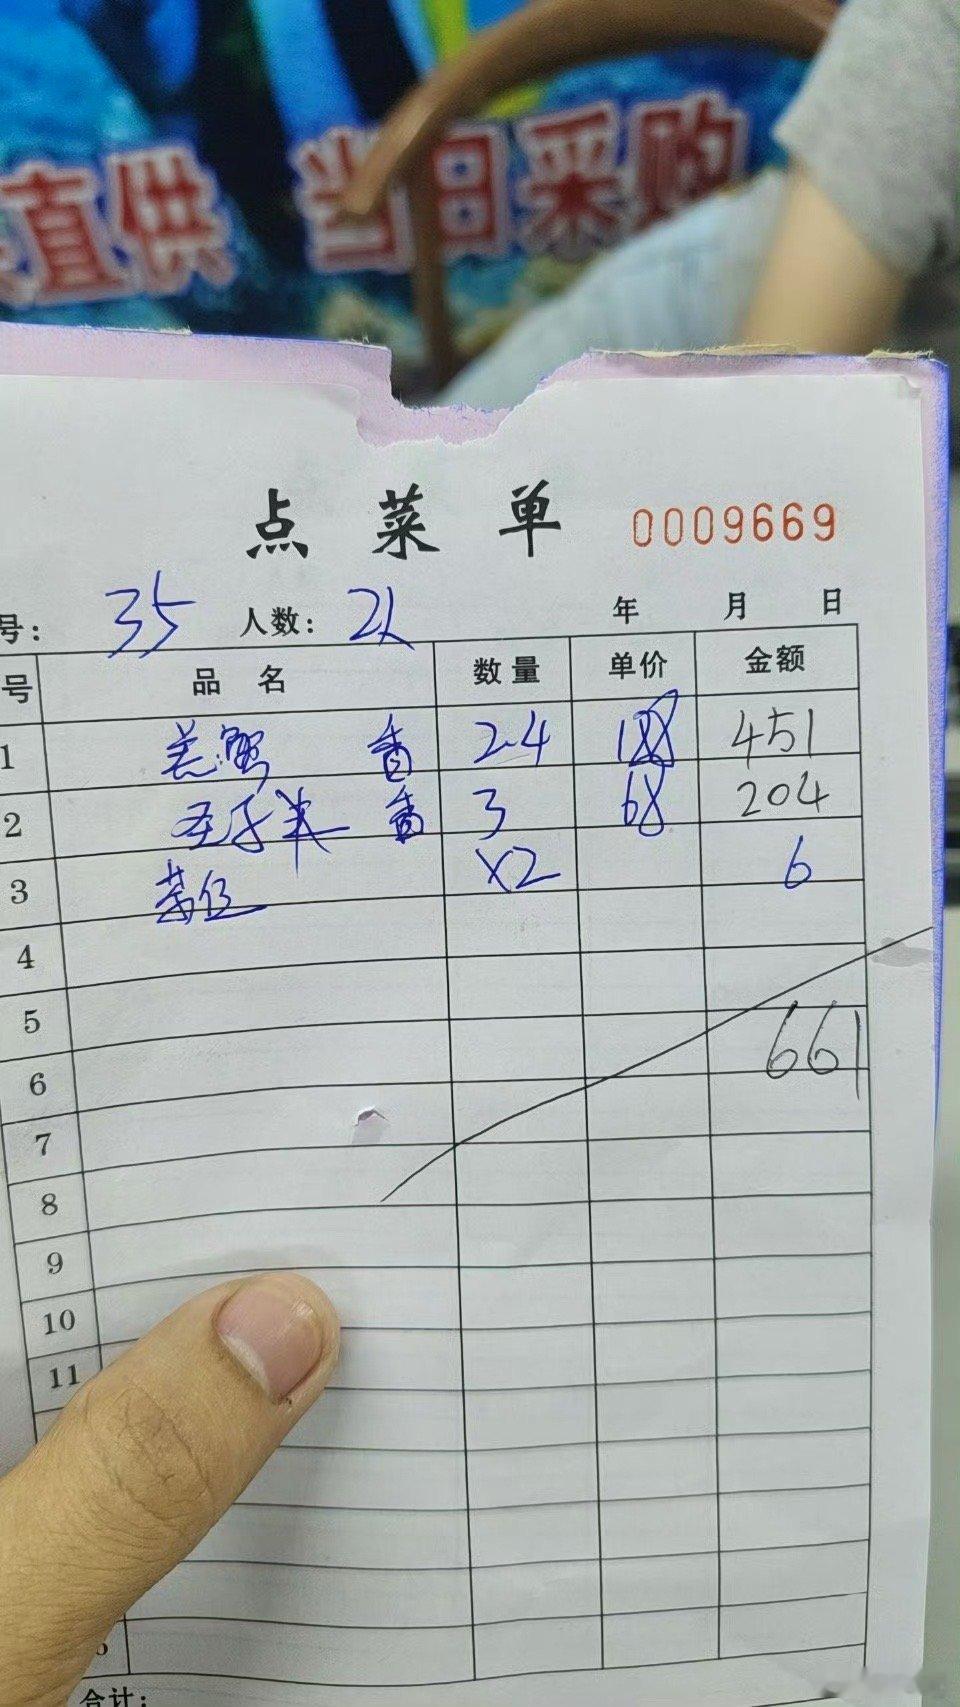 直供 当日采购
点菜单 0009669
号: 35 人数: 2人 年 月 日
号 品名 数量 单价 金额
1 羔蟹 香 2.4 188 451
2 圣子米 香 3 68 204
3 茶位 x2 6
4
5 661
6
7
8
9
10
11
合计: